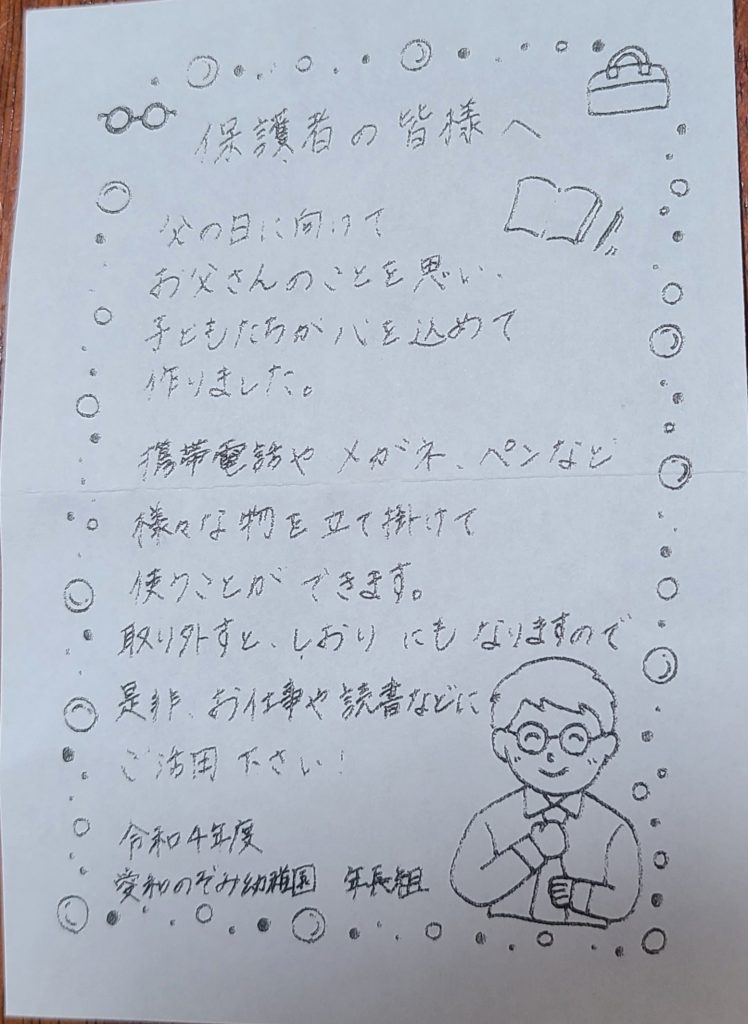 保護者の皆様へ
父の日に向けて
お父さんのことを思い、
子どもたちが心を込めて
作りました。
携帯電話やメガネ、ペンなど
様々な物を立て掛けて
使うことができます。
取り外すと、しおりにもなりますので
是非、お仕事や読書などに
ご活用下さい!
令和4年度
愛和のぞみ幼稚園 年長組